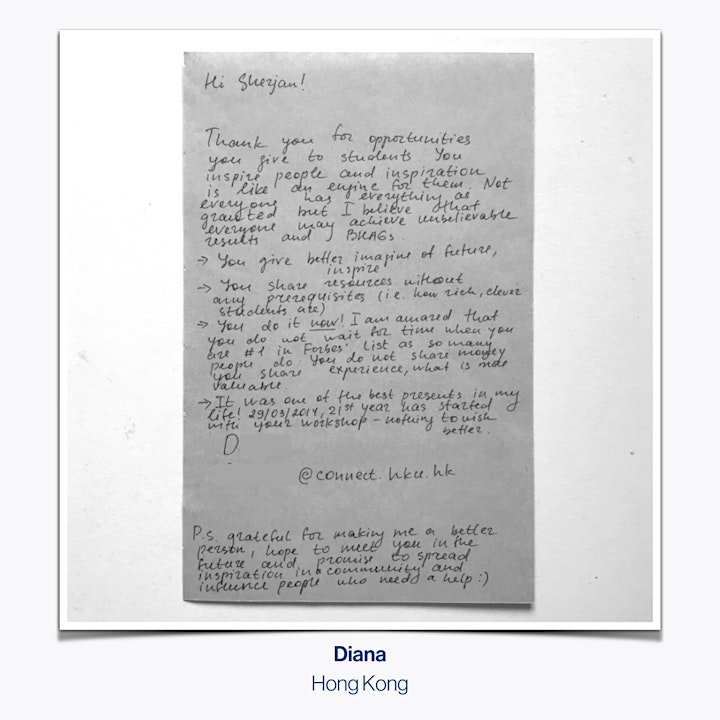 Hi Sherzan!
Thank you for opportunities
you give to students You
inspire people and inspiration
is like an engine for them. Not
everyone has everything as
granted but I believe that
everyone may achieve unbelievable
results and BHAGs.
→ You give better imagine of future,
inspire
→ You share resources without
any prerequisites (i.e. how rich, clever
students are)
→ You do it now! I am amazed that
you do not wait for time when you
are #1 in Forbes' List as so many
people do. You do not share money
you share experience, what is more
valuable.
→ It was one of the best presents in my
life! 29/03/2014, 21st year has started
with your workshop - nothing to wish
better.
D
@connect.hku.hk
P.s. grateful for making me a better
person, hope to meet you in the
future and promise to spread
inspiration in a community and
influence people who need a help :)
Diana
Hong Kong